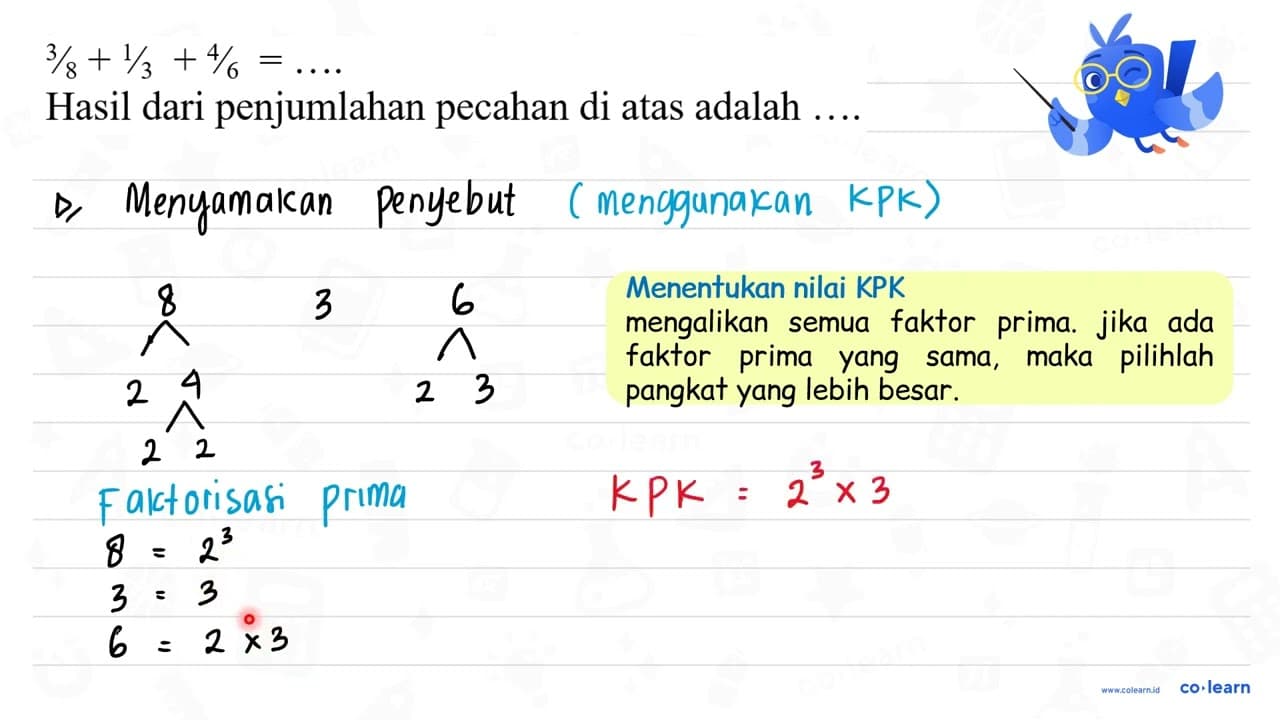 3/8 + 1/3 + 4/6 = ....
Hasil dari penjumlahan pecahan di atas adalah ....
Menyamakan penyebut (menggunakan KPK)
8 3 6
2 4 2 3
2 2
Menentukan nilai KPK
mengalikan semua faktor prima. jika ada
faktor prima yang sama, maka pilihlah
pangkat yang lebih besar.
Faktorisasi prima
8 = 2³
3 = 3
6 = 2 x 3
KPK = 2³ x 3
www.colearn.id co·learn